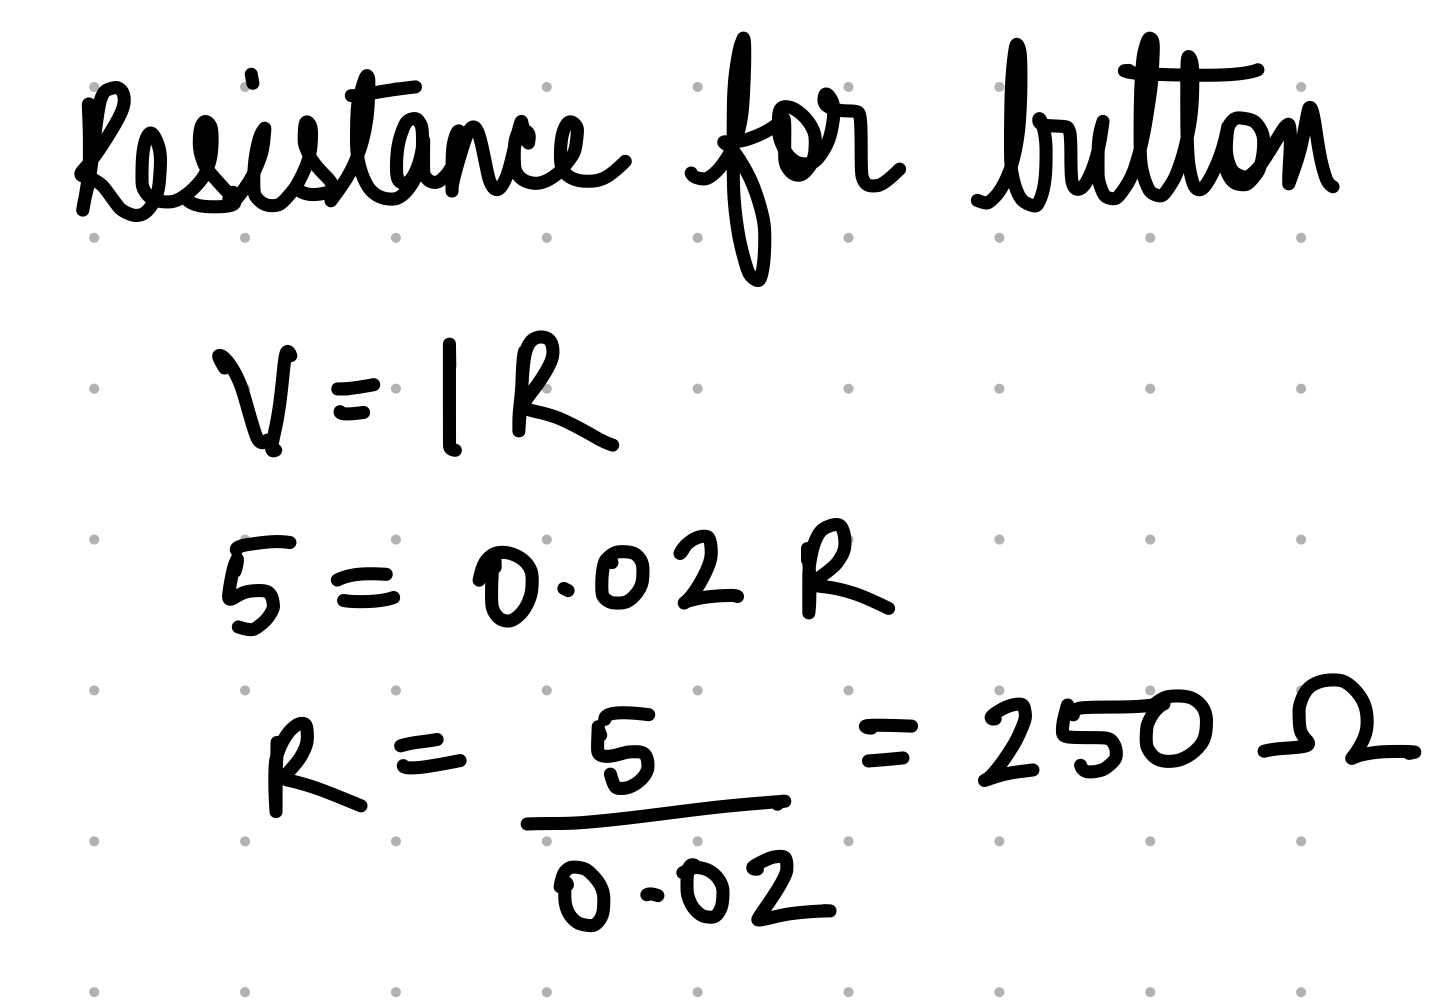 Resistance for button
V = I R
5 = 0.02 R
R = 5/0.02 = 250 Ω